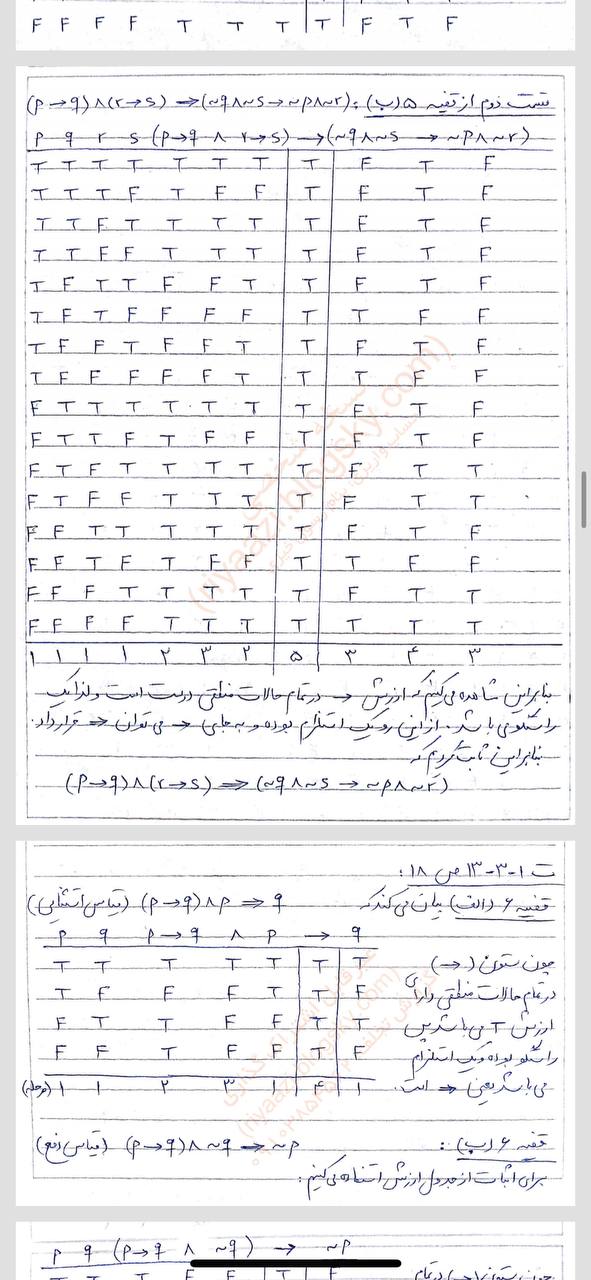 F F F F T T T T F T F
قسمت دوم از قضیه ۵(ب): (p→q)∧(r→s) → (~q∧~s → ~p∧~r)
p q r s (p→q ∧ r→s) → (~q∧~s → ~p∧~r)
T T T T T T T T F T F
T T T F T F F T F T F
T T F T T T T T F T F
T T F F T T T T F T F
T F T T F F T T F T F
T F T F F F F T T F F
T F F T F F T T F T F
T F F F F F T T T F F
F T T T T T T T F T F
F T T F T F F T F T F
F T F T T T T T F T T
F T F F T T T T F T T
F F T T T T T T F T F
F F T F T F F T T F F
F F F T T T T T F T T
F F F F T T T T T T T
۱ ۱ ۱ ۱ ۲ ۳ ۲ ۵ ۳ ۴ ۳
بنابراین مشاهده می‌کنیم که ارزش → در تمام حالات منطقی درست است و لذا یک
راستگو می باشد. از این رو یک استلزام بوده و به جای → می توان ⇒ قرار داد.
بنابراین ثابت کردیم که
(p→q)∧(r→s) ⇒ (~q∧~s → ~p∧~r)
ت ۱-۳-۱۳ ص ۱۸:
قضیه ۶ (الف) بیان می کند که (p→q)∧p ⇒ q (قیاس استثنایی)
p q p→q ∧ p → q
T T T T T T T چون ستون (→)
T F F F T T F در تمام حالات منطقی دارای
F T T F F T T ارزش T می باشد پس
F F T F F T F راستگو بوده و یک استلزام
(مرحله) ۱ ۱ ۲ ۳ ۱ ۴ ۱ می باشد یعنی ⇒ است.
قضیه ۶ (ب): (p→q)∧~q → ~p (قیاس رفع)
برای اثبات از جدول ارزش استفاده می کنیم:
p q (p→q ∧ ~q) → ~p
(riyaazi.blogsky.com)
(riyaazi.blogsky.com)